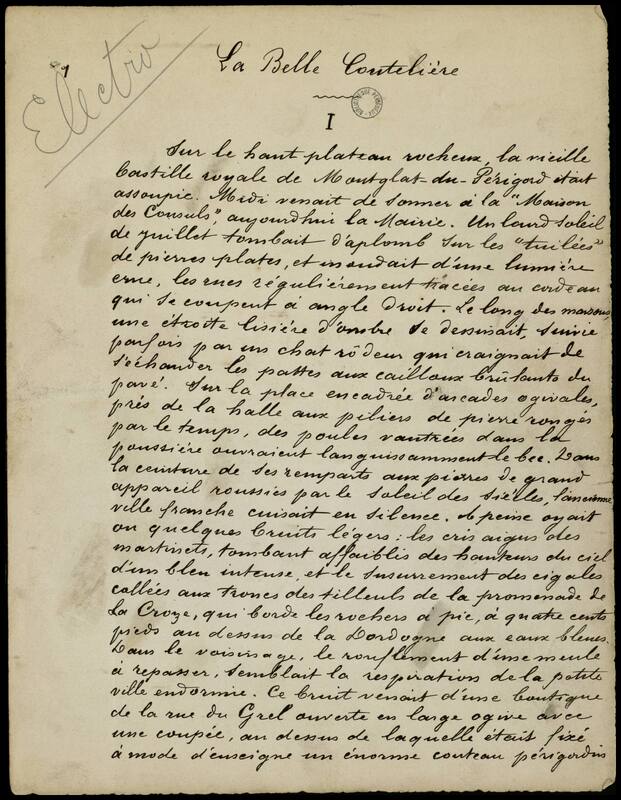 1
Electrio
La Belle Coutelière
I
Sur le haut plateau rocheux, la vieille
bastille royale de Montglat-du-Périgord était
assoupie. Midi venait de sonner à la "Maison
des Consuls", aujourd'hui la Mairie. Un lourd soleil
de juillet tombait d'aplomb sur les "tuilées"
de pierres plates, et inondait d'une lumière
crue, les rues régulièrement tracées au cordeau
qui se coupent à angle droit. Le long des maisons,
une étroite lisière d'ombre se dessinait, suivie
parfois par un chat rôdeur qui craignait de
s'échauder les pattes aux cailloux brûlants du
pavé. Sur la place encadrée d'arcades ogivales,
près de la halle aux piliers de pierre rongés
par le temps, des poules vautrées dans la
poussière ouvraient languissamment le bec. Dans
la ceinture de ses remparts aux pierres de grand
appareil roussies par le soleil des siècles, l'ancienne
ville franche cuisait en silence. A peine oyait
on quelques bruits légers: les cris aigus des
martinets, tombant affaiblis des hauteurs du ciel
d'un bleu intense, et le susurrement des cigales
collées aux troncs des tilleuls de la promenade de
La Croze, qui borde les rochers à pic, à quatre cents
pieds au dessus de la Dordogne aux eaux bleues.
Dans le voisinage, le ronflement d'une meule
à repasser, semblait la respiration de la petite
ville endormie. Ce bruit venait d'une boutique
de la rue du Grel ouverte en large ogive avec
une coupée, au dessus de laquelle était fixé
à mode d'enseigne un énorme couteau périgordin